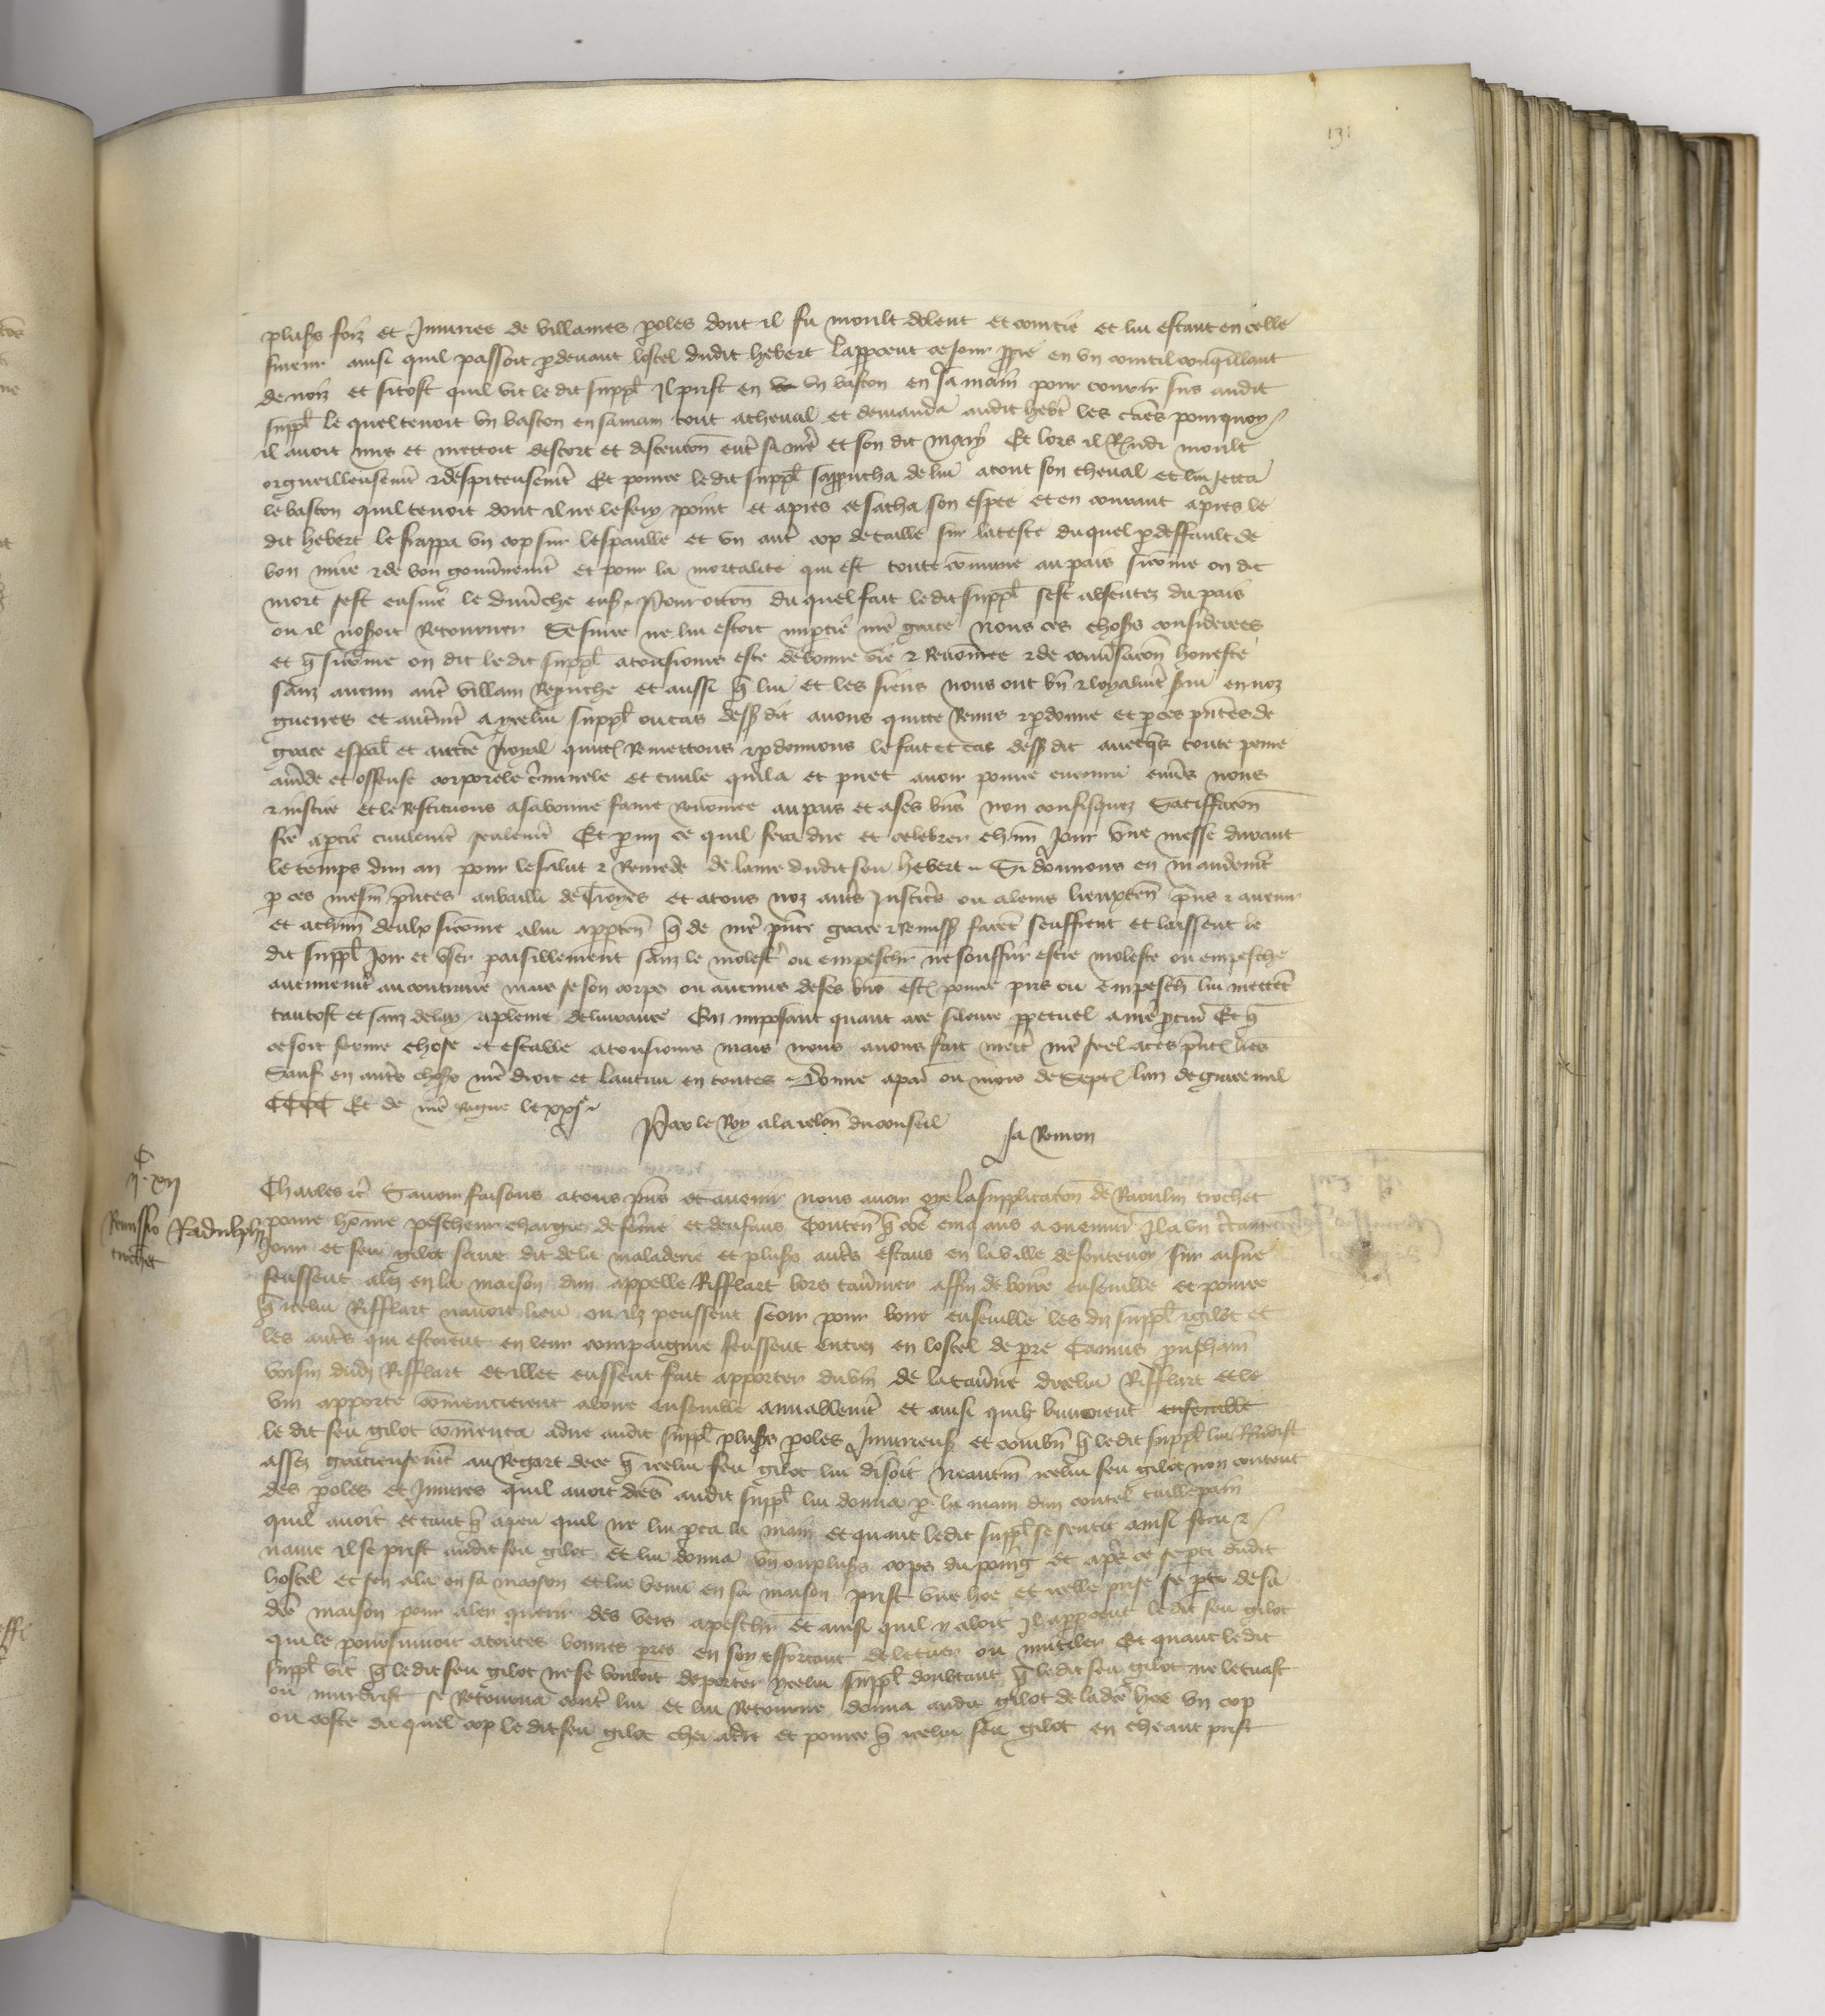 131
pluss foiz et Iniuriee de villaines poles dont il fu moult dolent et et lui estant en celle
fureur ainsi quil passoit pdevant lostel dudit hebert lapperceut ce jour en un courtil
de noiz et sitost quil vit le dit suppl Il prist en un baston en sa main pour courir sus audit
suppl le quel tenoit un baston en sa main tout a cheval et demanda audit hebt les causes pourquoy
il avoit mis et mettoit descort et discencon entre sa mere et son dit mary Et lors il Rndi moult
orgueilleusemt et despiteusemt Et pource ledit suppl sapproucha de lui atout son cheval et lui jetta
le baston quil tenoit dont il ne le fery point et apres ce sacha son espee et en courant apres le
dit hebert le frappa un cop sur lespaulle et un aut cop de taille sur la teste du quel pdeffault de
bon mire et de bon gouvnemt et pour la mortalite qui est toute comune au pais sicome on dit
mort sest ensuie le dimche ens Pour occon du quel fait le dit suppl sest absentez du pais
ou il noseroit Retourner se sur ce ne lui estoit nre grace Nous ces choses considerees
et q sicome on dit le dit suppl a tousiours este de bonne vie et Renomee et de convsacon honeste
sanz aucun aut villain Reprouche et aussi q lui et les siens nous ont bn et loyalmt svi en noz
guerres et autmt a ycelui suppl ou cas dessus dit avons quitte Remis et pdonne et p ces pntes de
grace espal et auctte Royal quitt Remettons et pdonnons le fait et cas dess dit avecqs toute peine
amde et offense corporele criminele et civile quil a et puet avoir pource encouru envs nous
et justice et le Restituons a sa bonne fame renomee au pais et a ses bns non confisquez Satiffacon
fce a ptie civilemt seulemt Et pmi ce quil fera dire et celebrer chun jour une messe durant
le temps dun an pour le salut et Remede de lame dudit feu hebert Si donnons en mandemt
p ces mesmes pntes au bailli de Troyes et a tous noz auts Justicrs ou a leurs lieuxten pns et avenir
et a chun deulx sicome a lui apptendra q de nre pnte grace et Remiss facent seuffrent et laissent le
dit suppl Joir et user paisiblement sanz le molester ou empescher ne souffrir estre moleste ou empesche
aucunemt au contraire mais se son corps ou aucuns de ses bns est pource pris ou empesch lui mettent
tantost et sanz delay a pleine delivrance En imposant quant a ce silence ppetuel a nre pcur Et q
ce soit ferme chose et estable a tousiours mais nous avons fait mett nre seel a ces pnt lres
Sauf en auts choses nre droit et lautrui en toutes Donne a par ou mois de Sept lan de grace mil
CCCC Et de nre regne le xxje
Par le Roy a la relon du conseil Ja Remon
C
ij xij
Remissio Radulphi
trochet
Charles etc Savoir faisons a tous pns et avenir nous avoir oye la supplicacon de Raoulin trochet
poure home pescheur chargie de feme et denfans conten q come cinq ans a ou environ Il a un certain
jour et feu gilot dit de la maladerie et pluss auts estans en la ville de fontenoy sur aisne
feussent alez en la maison dun appelle Rifflart lors tavnier affin de boire ensemble et pource
q icelui Rifflart navoit lieu ou ilz peussent seoir pour boire ensemble les diz suppl et gilot et
les auts qui estoient en leur compaignie feussent entrez en lostel de pierre Camus
voisin dudit Rifflart et illec eussent fait apporter du vin de la tavne dicelui Rifflart et le
vin apporte comencierent a boire ensemble amiablemt et ainsi quilz buvoient ensemble
le dit feu gilot comenca a dire audit suppl pluss poles Iniurieuss et combn q le dit suppl lui Rndist
assez gracieusemt au Regart de ce q icelui feu gilot lui disoit Neantm icelui feu gilot non content
des poles et Iniures quil avoit dites audit suppl lui donna p la main dun coutel taillepain
quil avoit et tant q a peu quil ne lui pca la main et quant ledit suppl se senti ainsi feru et
navre il se prist audit feu gilot et lui donna un ou pluss cops du poing et aps ce se pti dudit
hostel et sen ala en sa maison et lui venu en sa maison prist une hoe et icelle prise se pti de sa
dce maison pour aler querir des vers a peschr et ainsi quil y aloit Il apperceut le dit feu gilot
qui le poursuivoit a toutes bonnes en soy efforcant de le tuer ou mutiler Et quant le dit
suppl vit q le dit feu gilot ne se vouloit deporter ycelui suppl doubtant q le dit feu gilot ne le tuast
ou murdrist se Retourna contre lui et lui Retourne donna audit gilot de la dce hoe un cop
ou coste du quel cop le dit feu gilot chei a et pource q icelui feu gilot en cheant prist